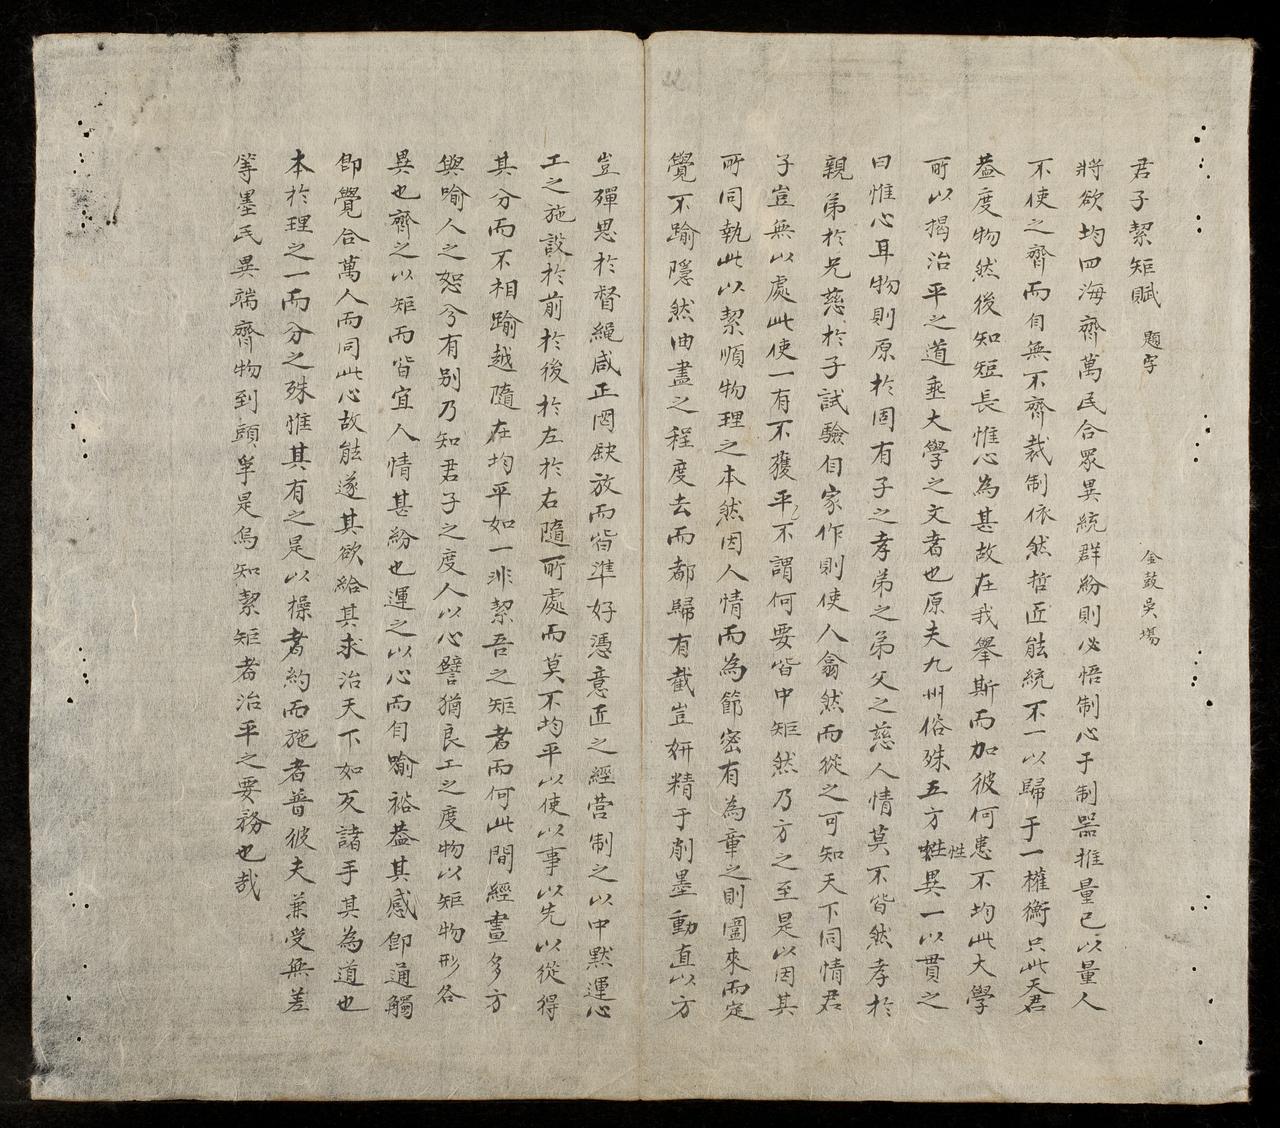 君子絜矩賦 題字
金鼓吳塲
將欲均四海齊萬民合衆異統群紛則必悟制心于制器推量已以量人
不使之齊而自無不齊裁制依然哲匠能統不一以歸于一權衡只此天君
盖度物然後知短長惟心為甚故在我舉斯而加彼何患不均此大學
所以揭治平之道垂大學之文者也原夫九州俗殊五方性異一以貫之
曰惟心耳物則原於固有子之孝弟之弟父之慈人情莫不皆然孝於
親弟於兄慈於子試驗自家作則使人翕然而從之可知天下同情君
子豈無以處此使一有不獲平不謂何要皆中矩然乃方之至是以因其
所同執此以絜順物理之本然因人情而為節密有為章之則圖來而定
覺不踰隱然由盡之程度去而都歸有截豈妍精于削墨動直以方
豈殫思於督繩咸正罔缺放而皆準好憑意匠之經营制之以中黙運心
工之施設於前於後於左於右隨所處而莫不均平以使以事以先以從得
其分而不相踰越隨在均平如一非絜吾之矩者而何此間經畫多方
與喻人之恕兮有别乃知君子之度人以心譬猶良工之度物以矩物形各
異也齊之以矩而皆宜人情甚紛也運之以心而自喻裕盖其感即通觸
即覺合萬人而同此心故能遂其欲給其求治天下如反諸手其為道也
本於理之一而分之殊惟其有之是以操者約而施者普彼夫兼受無差
等墨氏異端齊物到頭牟是烏知絜矩者治平之要務也哉